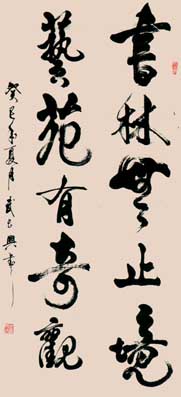 書林無止境
藝苑有奇觀
癸巳年夏月武